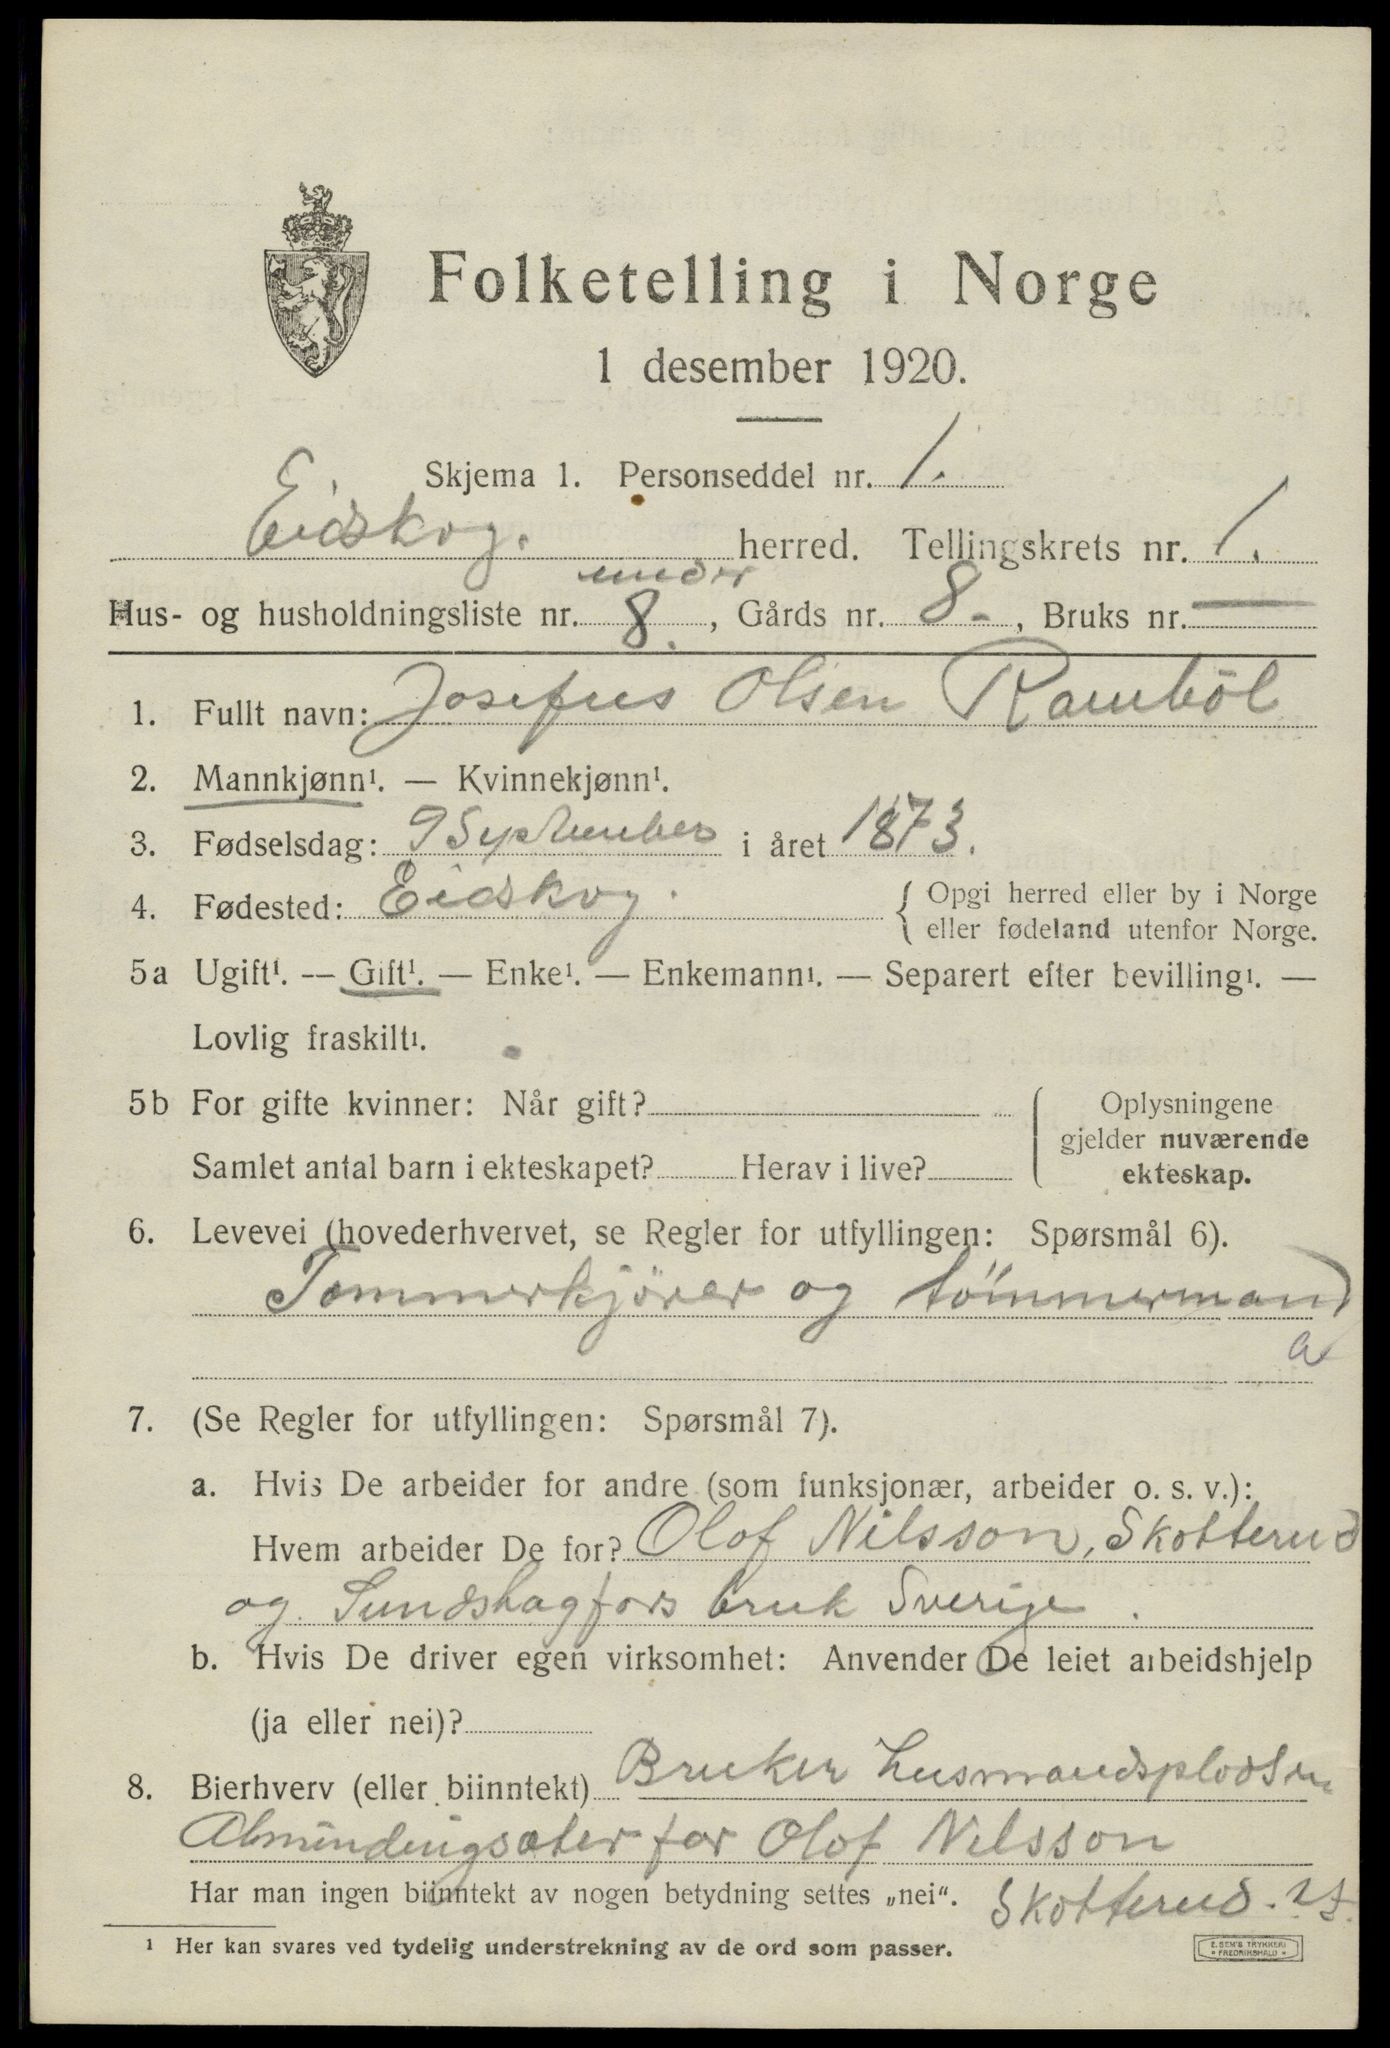 Folketelling i Norge
1 desember 1920.
Skjema 1. Personseddel nr. 1.
Eidskog. herred. Tellingskrets nr. 1.
under
Hus- og husholdningsliste nr. 8., Gårds nr. 8., Bruks nr. —
1. Fullt navn: Josefus Olsen Ramböl
2. Mannkjønn¹. — Kvinnekjønn¹.
3. Fødselsdag: 9 September i året 1873.
4. Fødested: Eidskog. { Opgi herred eller by i Norge
eller fødeland utenfor Norge.
5a Ugift¹. — Gift¹. — Enke¹. — Enkemann¹. — Separert efter bevilling¹. —
Lovlig fraskilt¹.
5b For gifte kvinner: Når gift?
Samlet antal barn i ekteskapet? Herav i live?
Oplysningene
gjelder nuværende
ekteskap.
6. Levevei (hovederhvervet, se Regler for utfyllingen: Spørsmål 6).
Tømmerkjörer og tömmermand
a
7. (Se Regler for utfyllingen: Spørsmål 7).
a. Hvis De arbeider for andre (som funksjonær, arbeider o. s. v.):
Hvem arbeider De for? Olof Nilsson, Skotterud
og Sundshagfors bruk Sverige.
b. Hvis De driver egen virksomhet: Anvender De leiet arbeidshjelp
(ja eller nei)?
8. Bierhverv (eller biinntekt) Bruker husmandsplodsen
Almindingsæter for Olof Nilsson
Har man ingen biinntekt av nogen betydning settes „nei“. Skotterud.
¹ Her kan svares ved tydelig understrekning av de ord som passer.
E. SEM'S TRYKKERI
FREDRIKSHALD